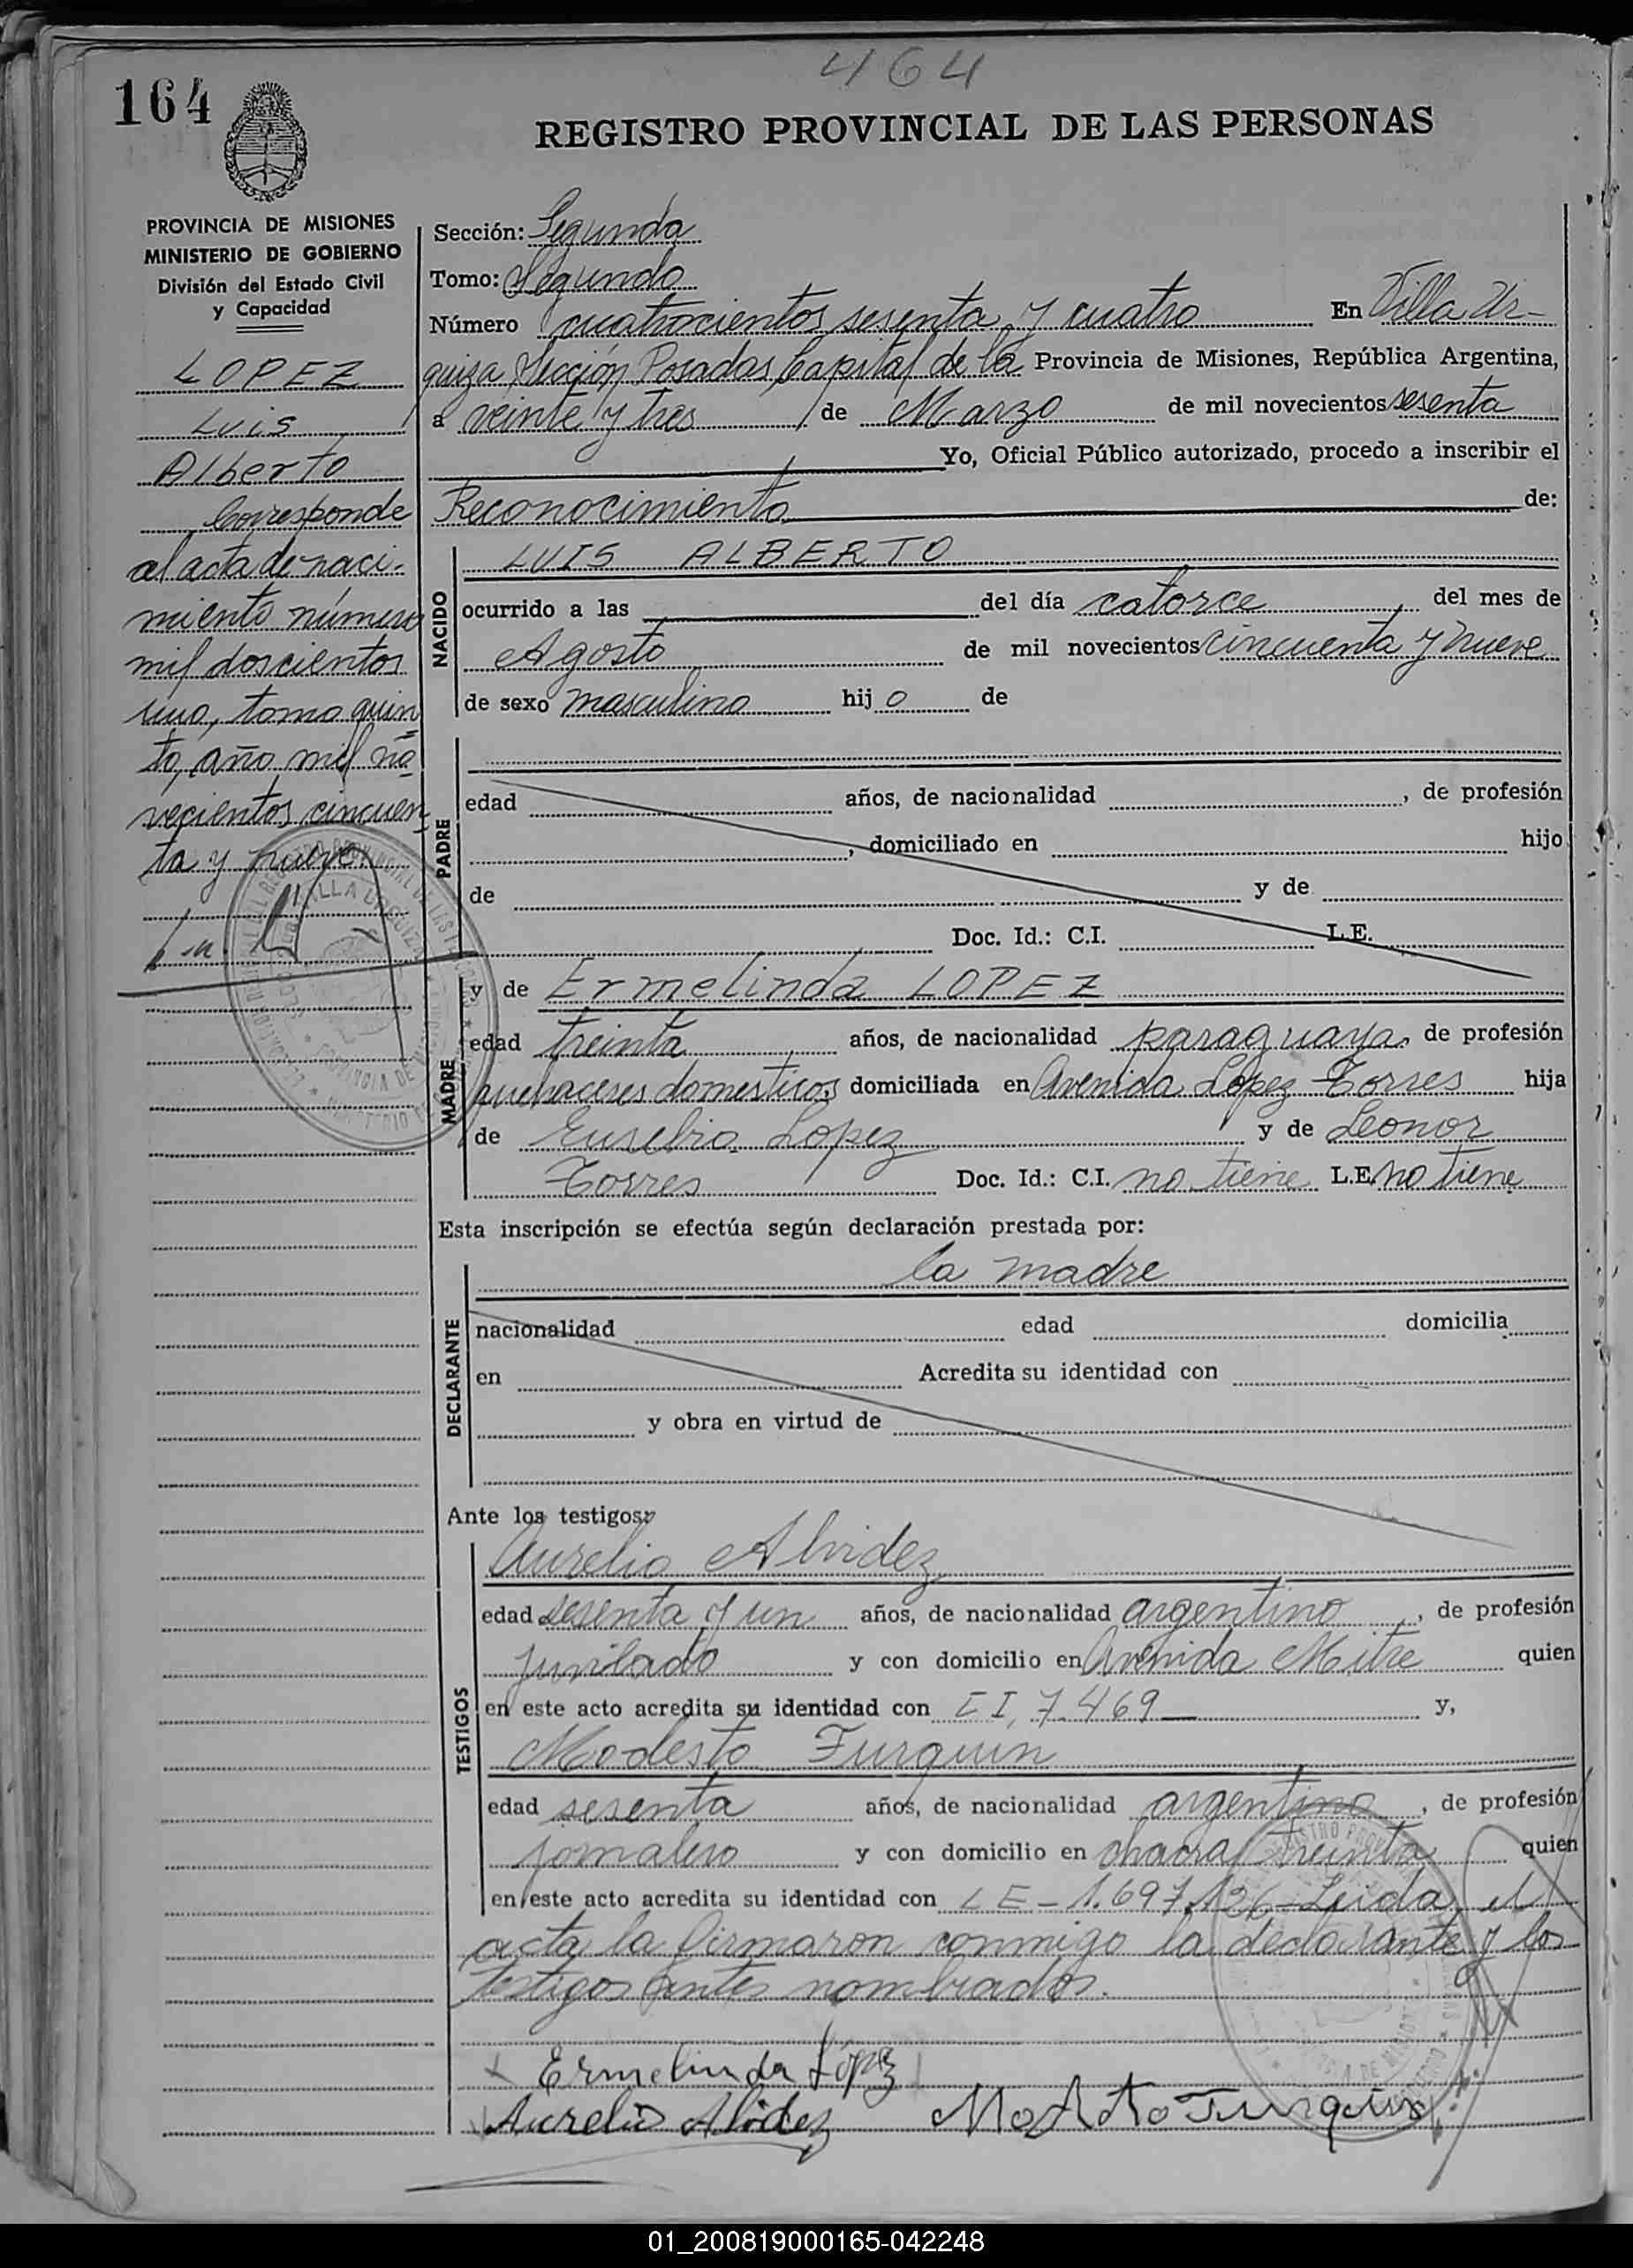 464
164
REGISTRO PROVINCIAL DE LAS PERSONAS
PROVINCIA DE MISIONES
MINISTERIO DE GOBIERNO
División del Estado Civil
y Capacidad
LOPEZ
Luis
Alberto
Corresponde
al acta de naci-
miento número
mil doscientos
uno, tomo quin
to, año mil no
vecientos cincuen
ta y nueve.
Sección: Segunda
Tomo: Segundo
Número cuatrocientos sesenta y cuatro En Villa Ur-
quiza Sección Posadas, Capital de la Provincia de Misiones, República Argentina,
a veinte y tres de Marzo de mil novecientos sesenta
Yo, Oficial Público autorizado, procedo a inscribir el
Reconocimiento de:
NACIDO
LUIS ALBERTO
ocurrido a las del día catorce, del mes de
Agosto de mil novecientos cincuenta y nueve
de sexo masculino hijo de
PADRE
edad años, de nacionalidad , de profesión
, domiciliado en hijo
de y de
Doc. Id.: C.I. L.E.
MADRE
y de Ermelinda LOPEZ
edad treinta años, de nacionalidad paraguaya, de profesión
quehaceres domesticos domiciliada en Avenida López Torres hija
de Eusebio Lopez y de Leonor
Torres Doc. Id.: C.I. no tiene L.E. no tiene
Esta inscripción se efectúa según declaración prestada por:
DECLARANTE
la madre
nacionalidad edad domicilia
en Acredita su identidad con
y obra en virtud de
Ante los testigos:
TESTIGOS
Aurelio Alvidez
edad sesenta y un años, de nacionalidad argentino, de profesión
jubilado y con domicilio en Avenida Mitre quien
en este acto acredita su identidad con C I, 7.469 y,
Modesto Furquin
edad sesenta años, de nacionalidad argentino, de profesión
jornalero y con domicilio en chacra treinta quien
en este acto acredita su identidad con LE - 1.697.126 - Leida el
acta la firmaron conmigo la declarante y los
testigos antes nombrados.
Ermelinda López
Aurelio Alvidez Modesto Furquin
01_200819000165-042248